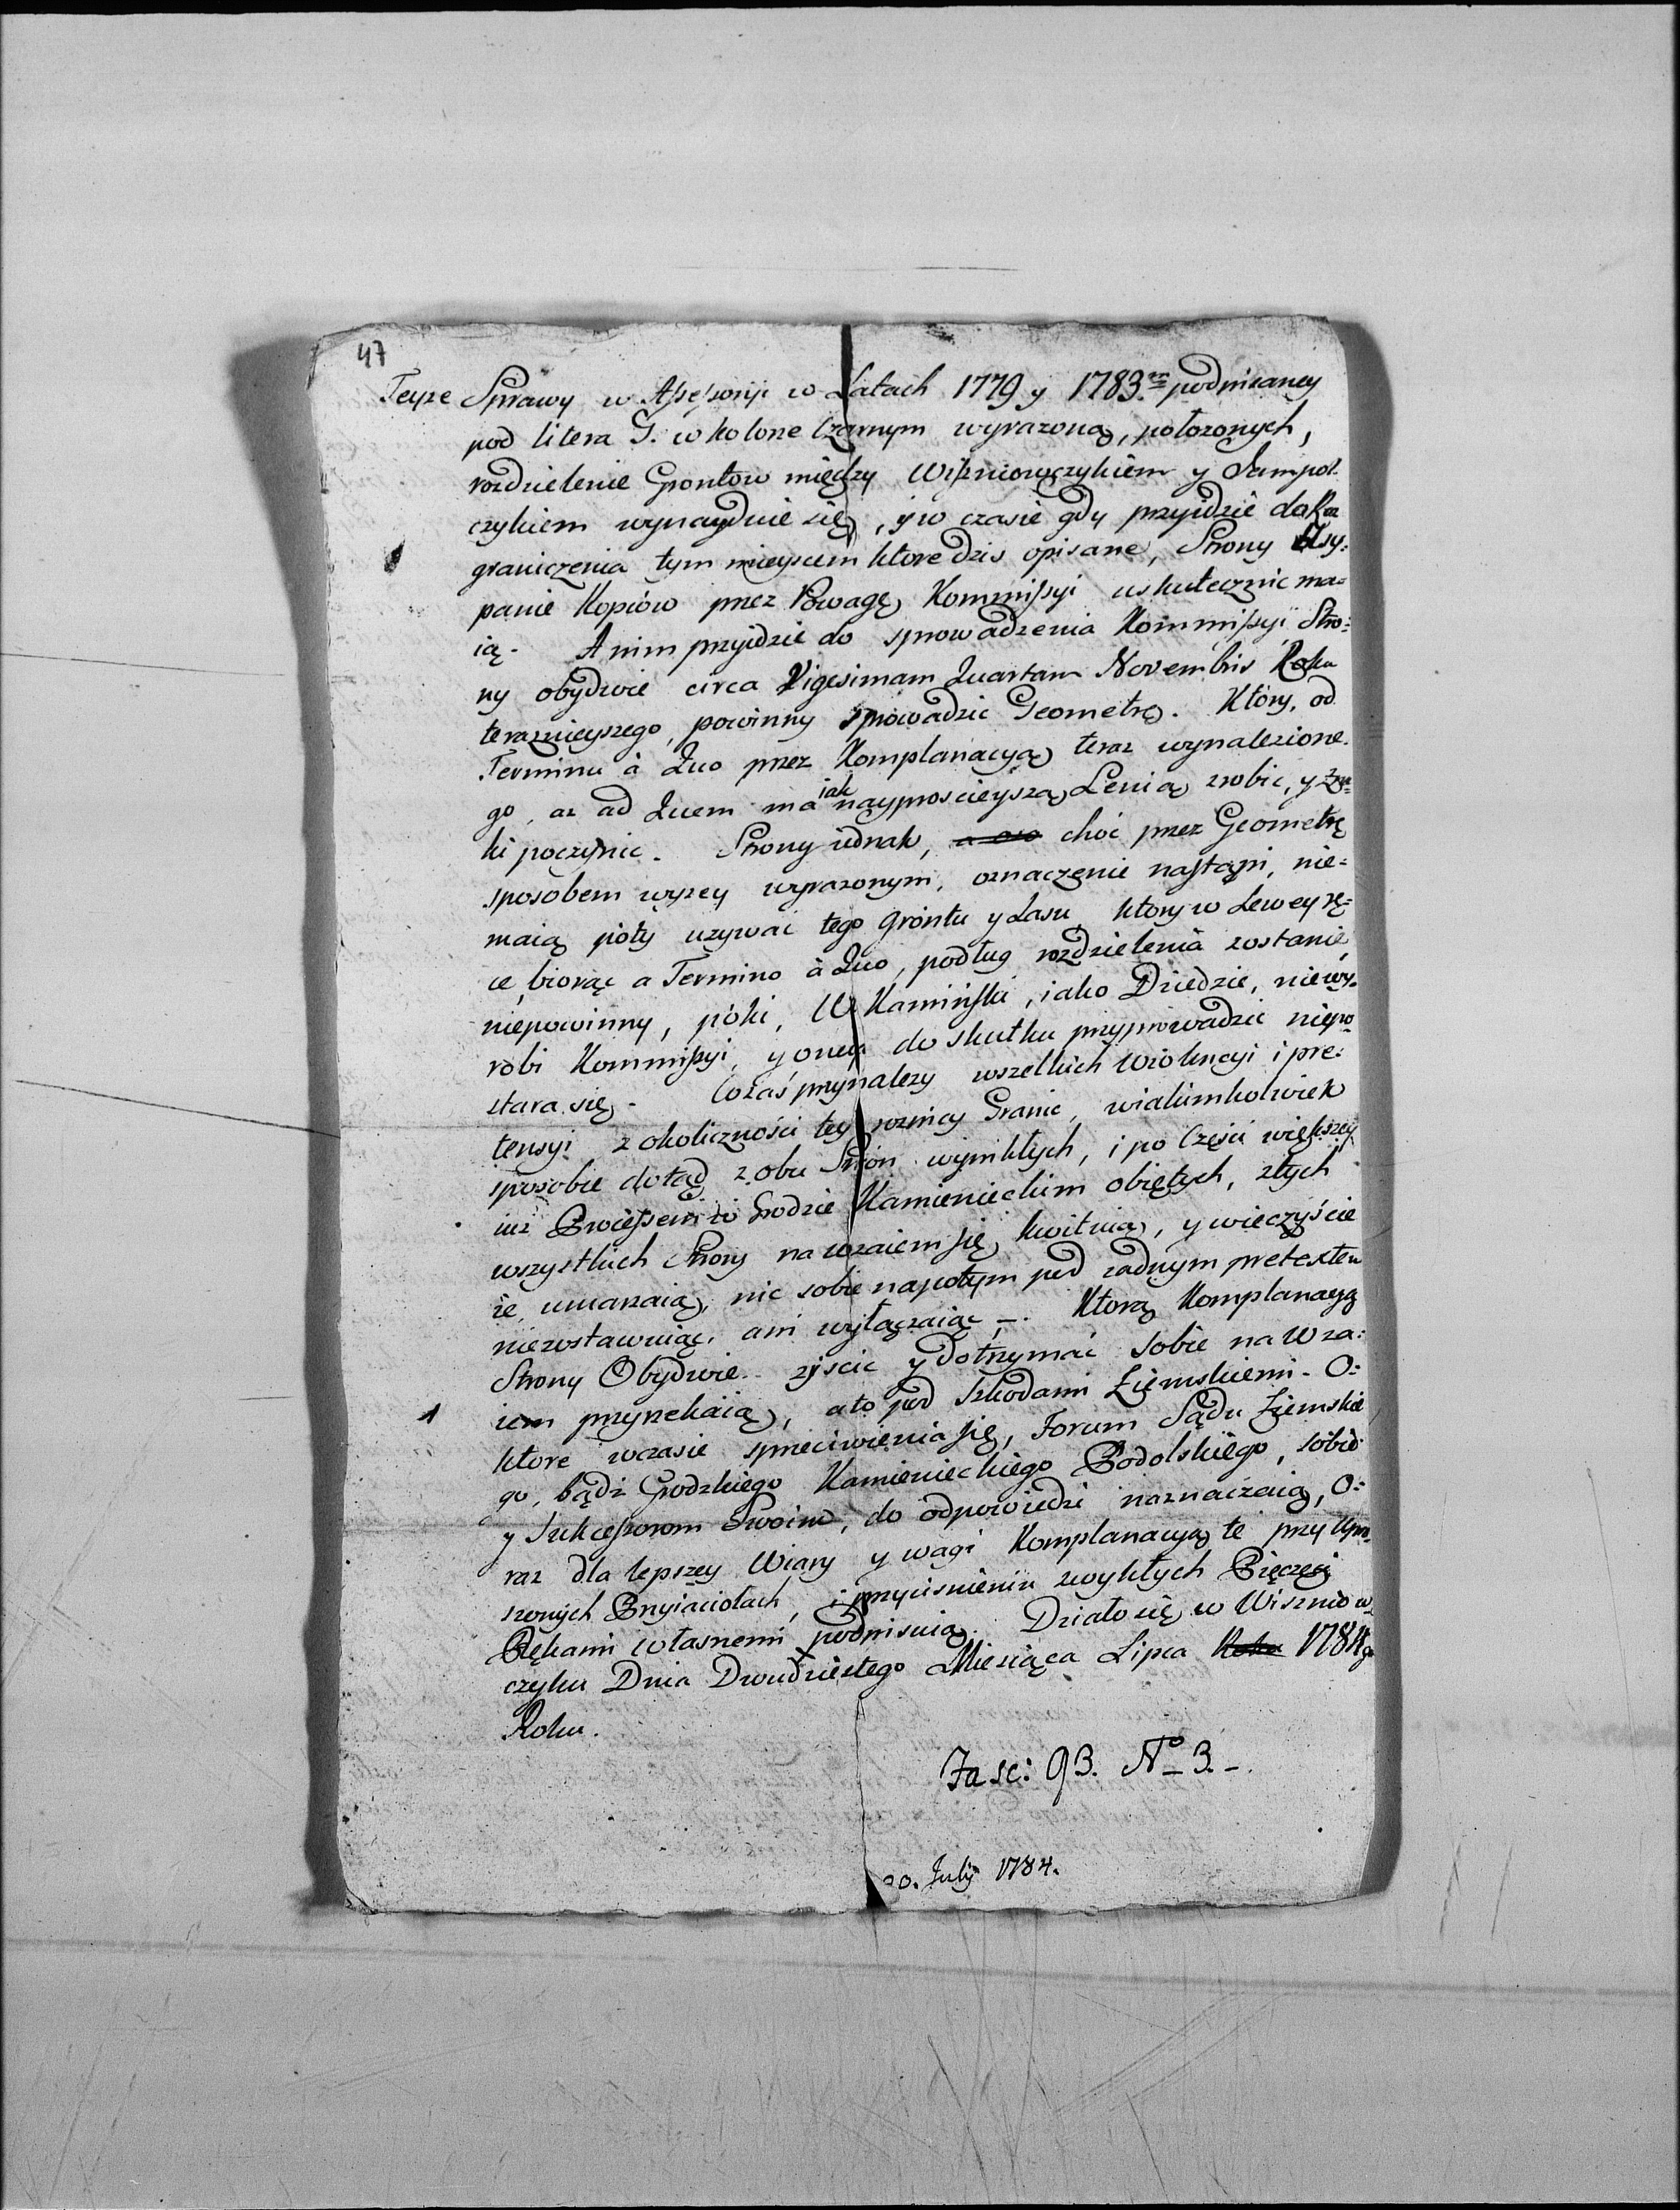 47
Teyze Sprawy w Assessoryi w Latach 1779 y 1783. podpisaney
pod litera G. w kolorze Czarnym wyrazoną, połozonych,
rozdzielenie Grontow między Wiszniowczykiem y Jampol
czykiem wynaydzie się, y w czasie gdy przyidzie do Roz
graniczenia tym mieyscem ktore dzis opisane, Strony Usy:
panie Kopców przez Powagę Kommissyi uskutecznic ma=
ią. A nim przyidzie do sprowadzenia Kommissyi Stro=
ny obydwie circa Vigesimam Quartam Novembris Roku
teraznieyszego, powinny sprowadzic Geometrę. Który, od
Terminu à Quo przez Komplanacyą teraz wynalezione
go, az ad Quem ma iak nayprosceyszą Lenią zrobic, y Zna=
ki poczynic. Strony iednak, choc przez Geometrę
sposobem wyzey wyrazonym, oznaczenie nastąpi, nie=
maią póty uzywac tego grontu y Lasu, ktory w Lewey rę=
ce, biorąc a Termino à Quo, podług rozdzielenia zostanie,
niepowinny, póki, W. Kamiński, iako Dziedzic, niewy=
robi Kommissyi, y oney do skutku przyprowadzic niepo=
stara się. Cozaś przynalezy wszelkich Wiolencyi i pre=
tensyi z okoliczności tey roznicy Granic, wiakimkolwiek
sposobie dotąd z obu Stron wynikłych, i po Części większey
iuz Processem w Grodzie Kamienieckim obiętych, ztych
wszystkich Strony nawzaiem się kwituią, y wieczyście
ie umarzaią, nic sobie napotym pod zadnym pretextem
niezostawuiąc, ani wyłączaiąc. Którą Komplanacyą
Strony Obydwie zyscic y dotrzymać sobie na Wza=
iem przyrzekaią, ato pod Szkodami Ziemskiemi. O=
ktore wczasie sprzeciwienia się, Forum Sądu Ziemskie
go, bądz Grodzkiego Kamienieckiego Podolskiego, sobie
y Sukcessorom Swoim, do odpowiedzi naznaczaią, O=
raz dla lepszey Wiary y wagi Komplanacyą te przy Upro=
szonych Przyiaciołach, i przycisnieniu zwykłych Pięczęci
Rękami własnemi podpisuią. Działo się w Wiszniow
czyku Dnia Dwudziestego Miesiąca Lipca Roku 1784go
Roku.
Fasc: 93. No 3.
20. July 1784.